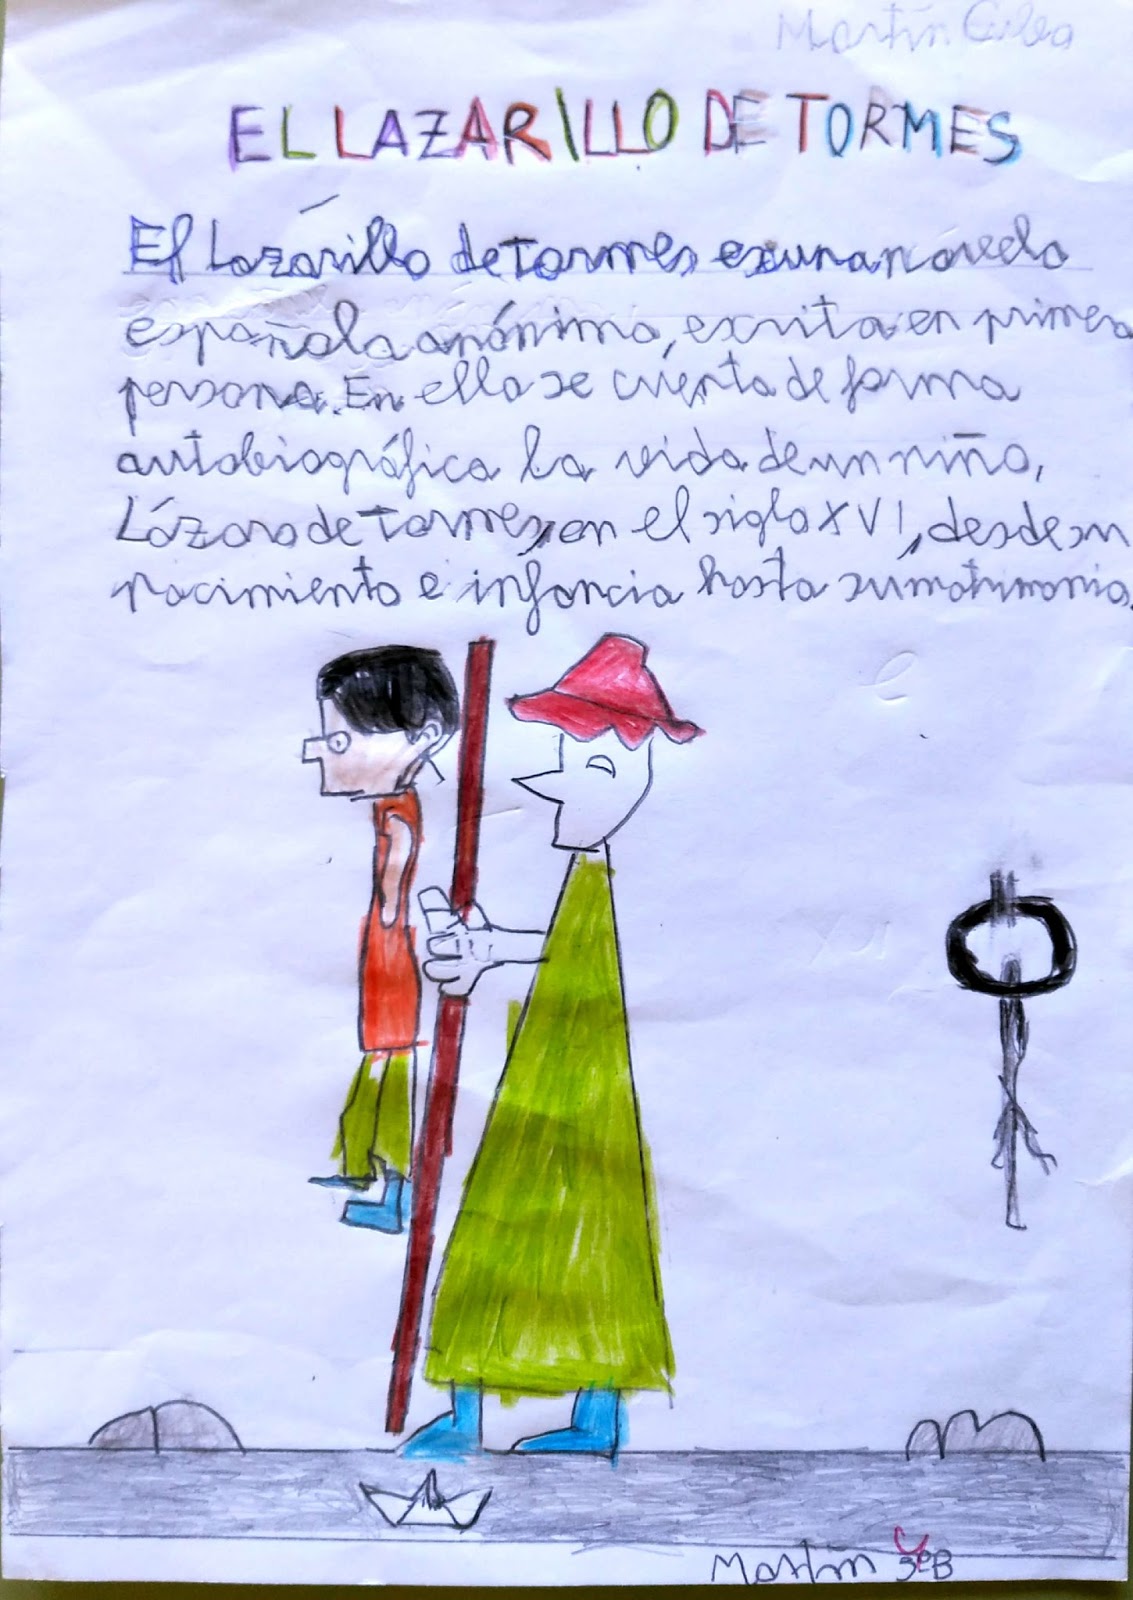 Martín
EL LAZARILLO DE TORMES
El Lazarillo de Tormes es una novela
española anónima, escrita en primera
persona. En ella se cuenta de forma
autobiográfica la vida de un niño,
Lázaro de Tormes, en el siglo XVI, desde su
nacimiento e infancia hasta su matrimonio.
Martín